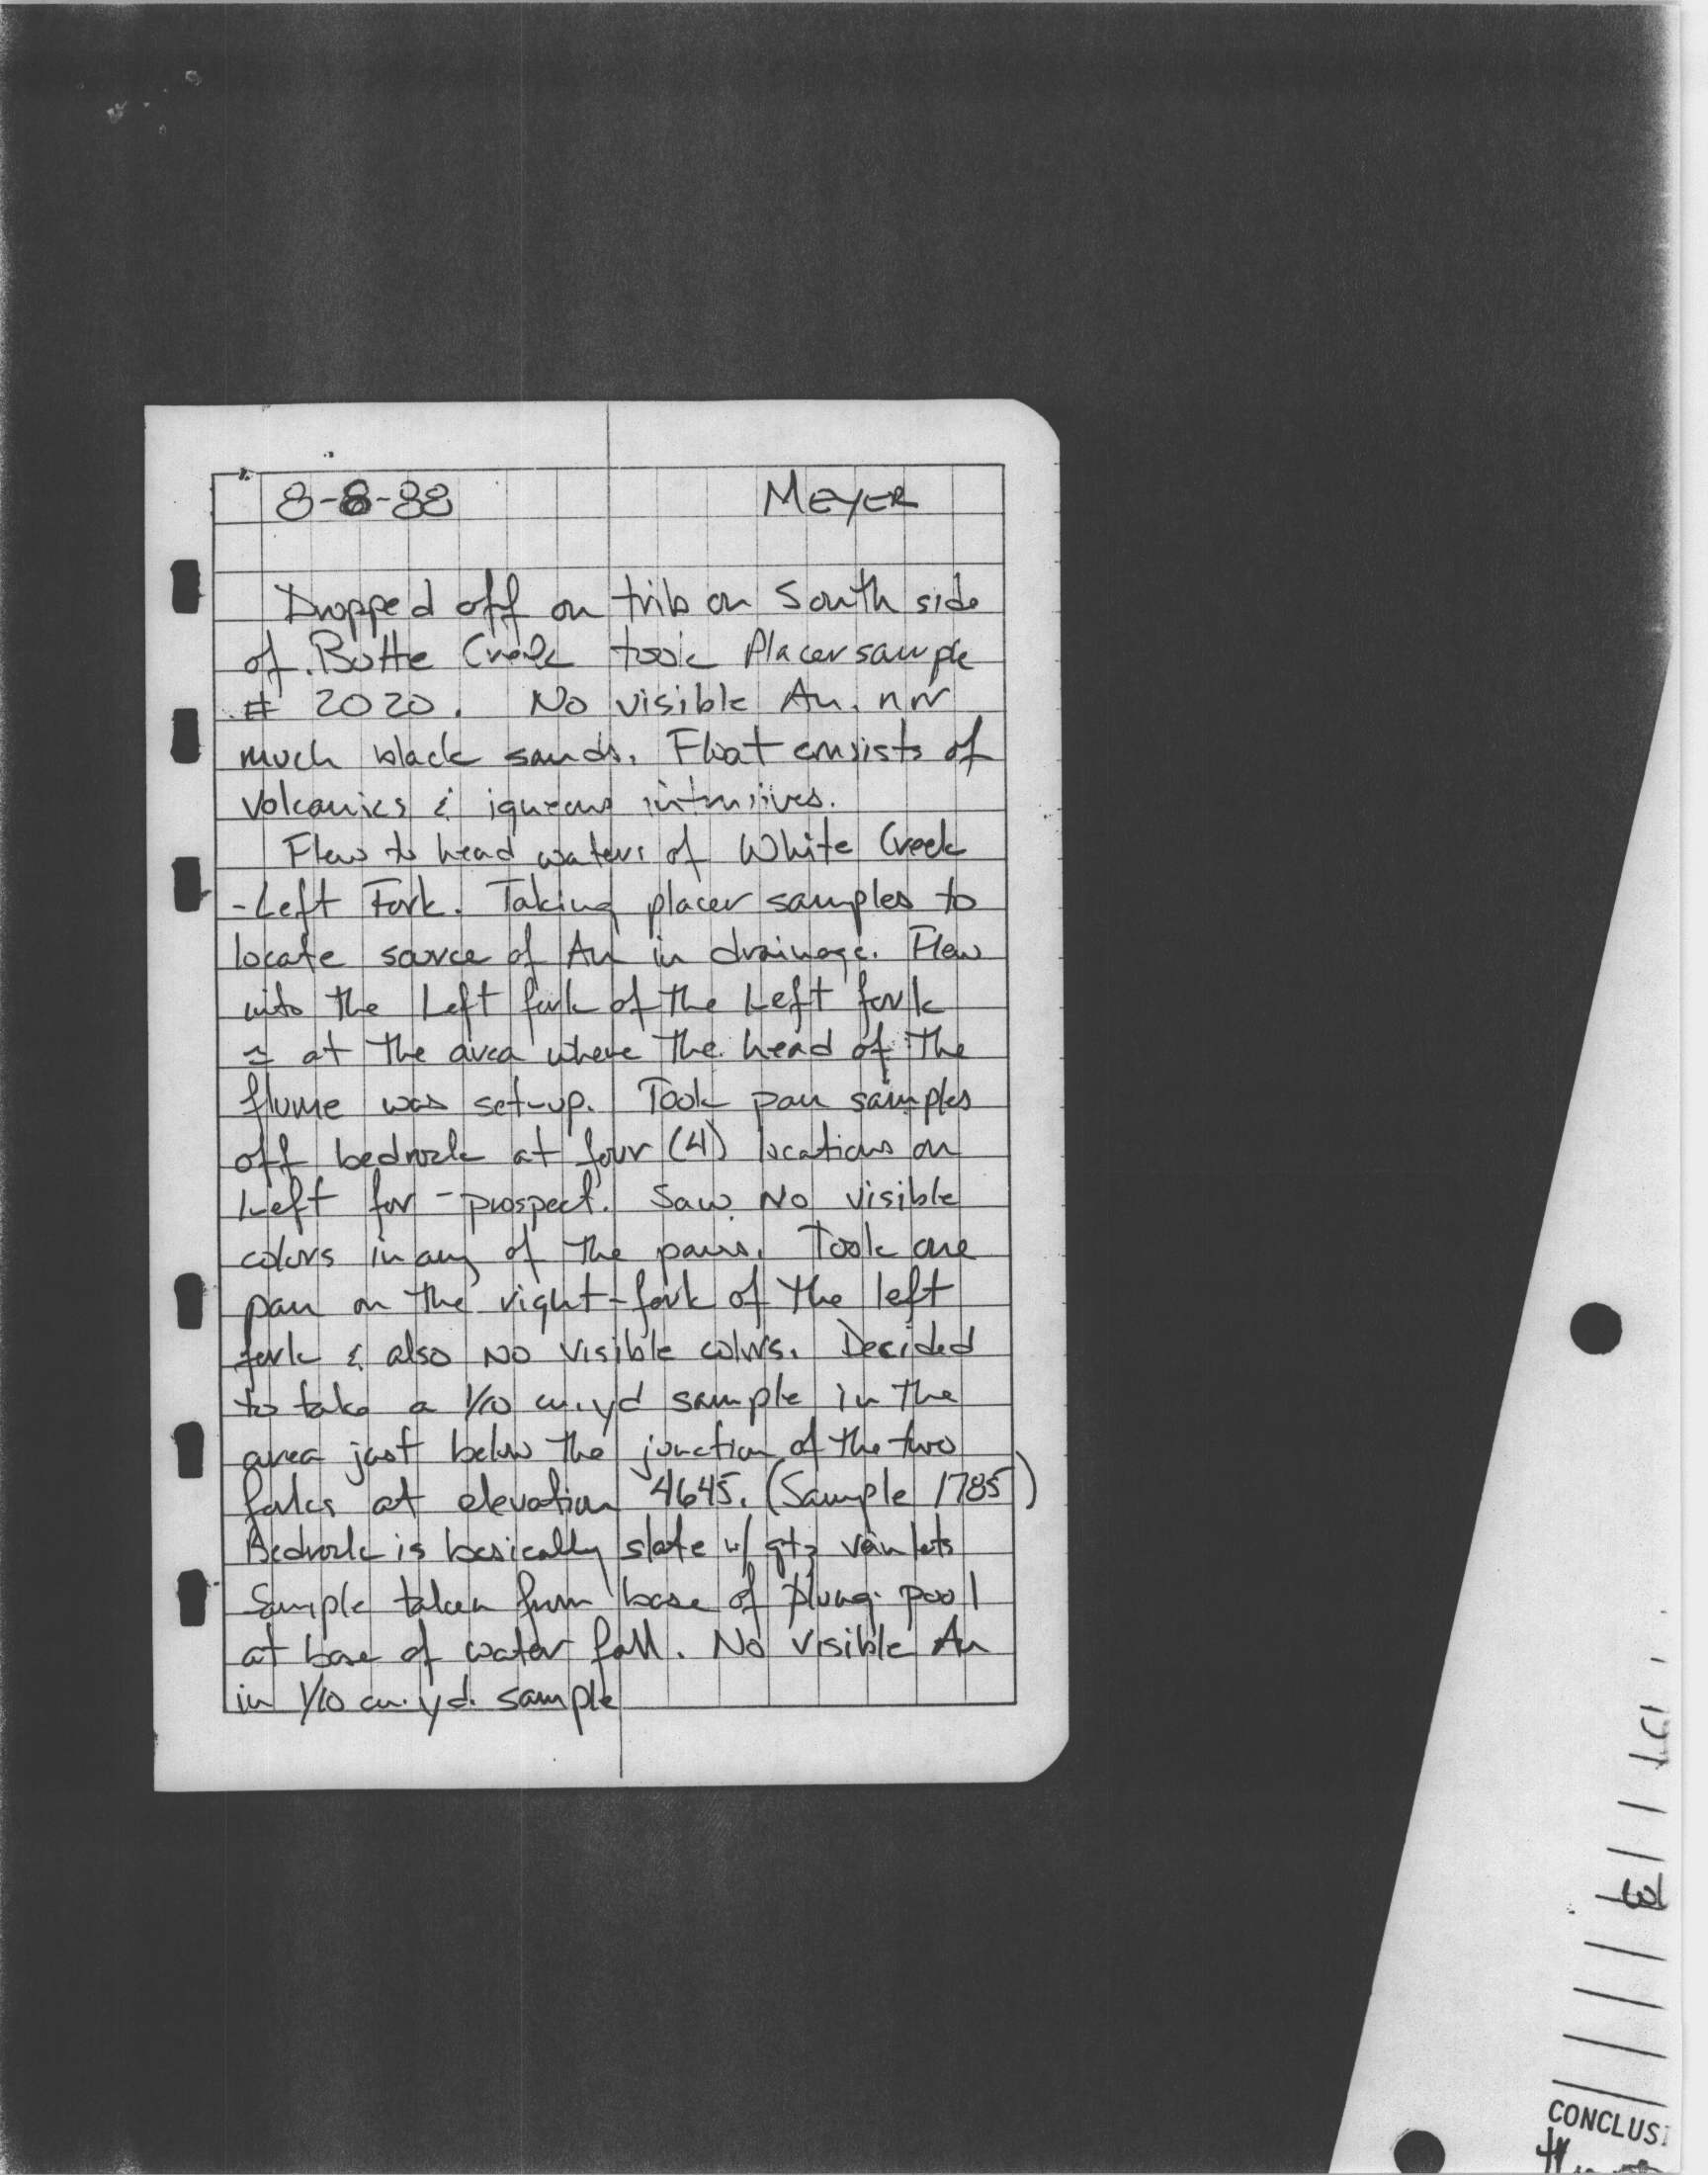 8-8-88 MEYER
Dropped off on trib on South side
of Butte Creek took Placer sample
# 2020. No visible Au. nor
much black sands. Float consists of
Volcanics & igneous intrusives.
Flew to head waters of White Creek
- Left Fork. Taking placer samples to
locate source of Au in drainage. Flew
into the Left fork of the Left fork
≈ at the area where the head of the
flume was set-up. Took pan samples
off bedrock at four (4) locations on
Left for - prospect. Saw No visible
colors in any of the pans. Took one
pan on the right-fork of the left
fork & also No visible colors. Decided
to take a 1/10 cu.yd sample in the
area just below the junction of the two
forks at elevation 4645. (Sample 1785)
Bedrock is basically slate w/ qtz veinlets
Sample taken from base of plung pool
at base of water fall. No visible Au
in 1/10 cu. yd. sample
CONCLUSI